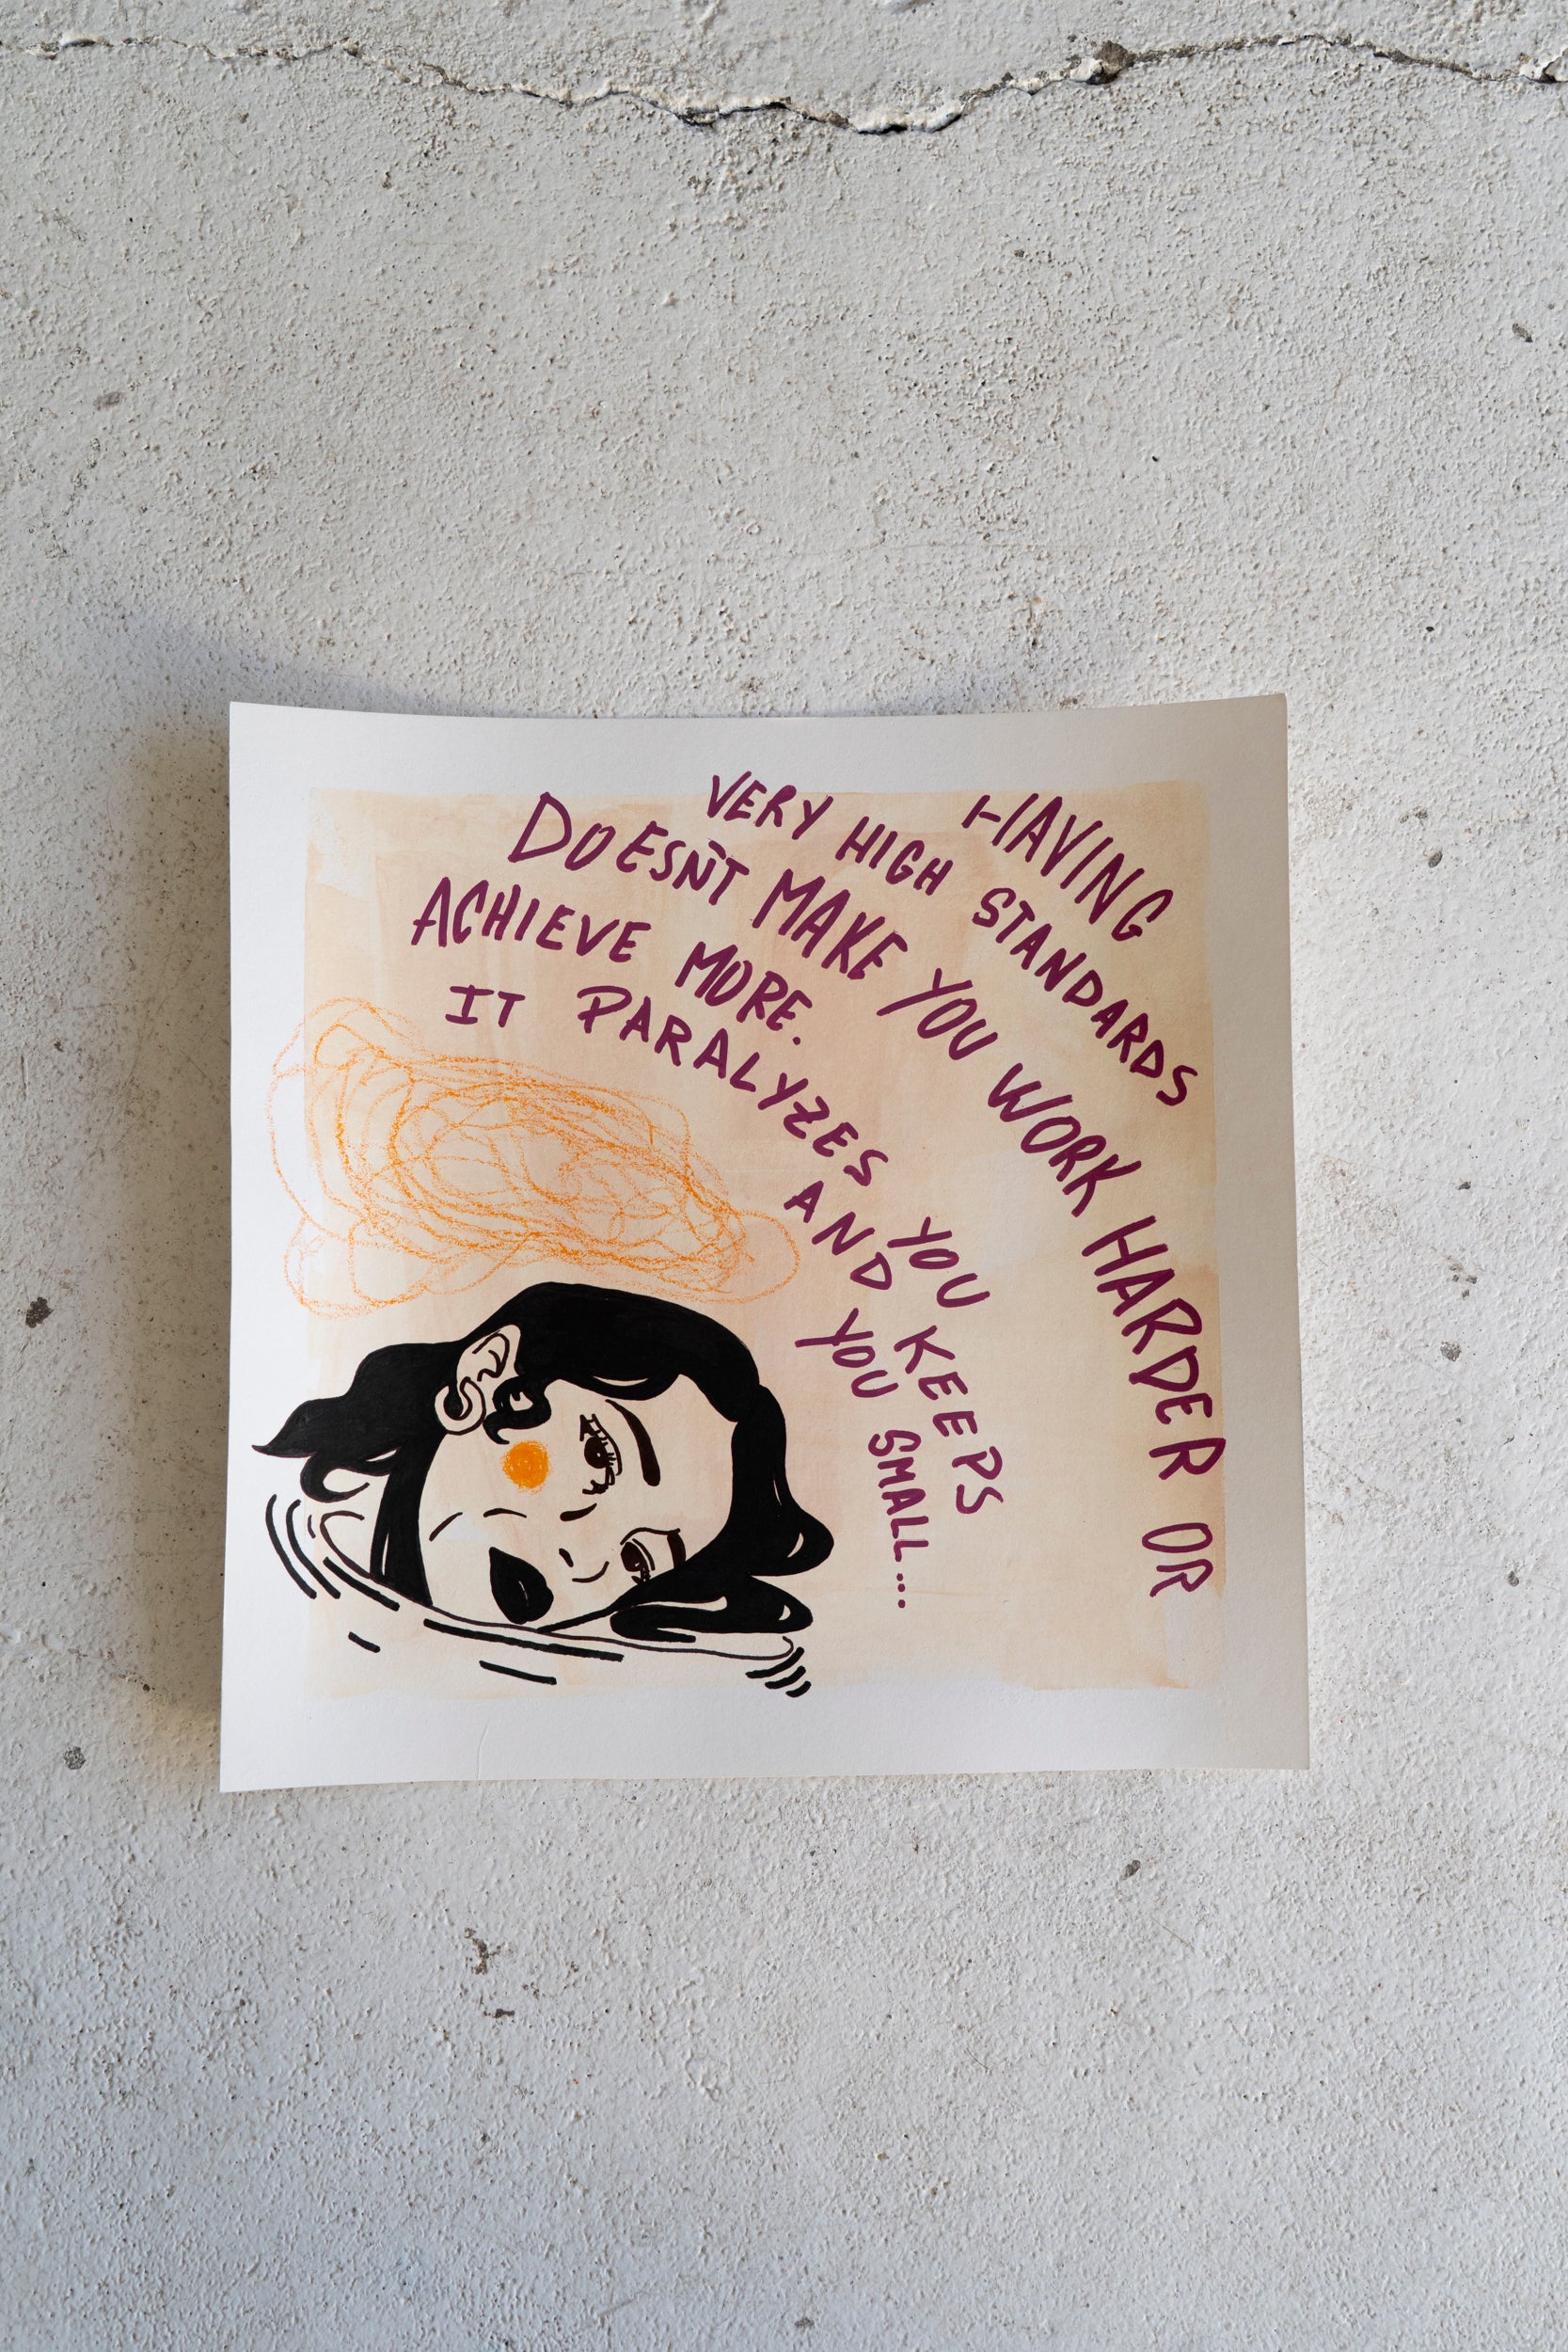 HAVING
VERY HIGH STANDARDS
DOESN'T MAKE YOU WORK HARDER OR
ACHIEVE MORE.
IT PARALYZES YOU KEEPS
AND YOU SMALL...